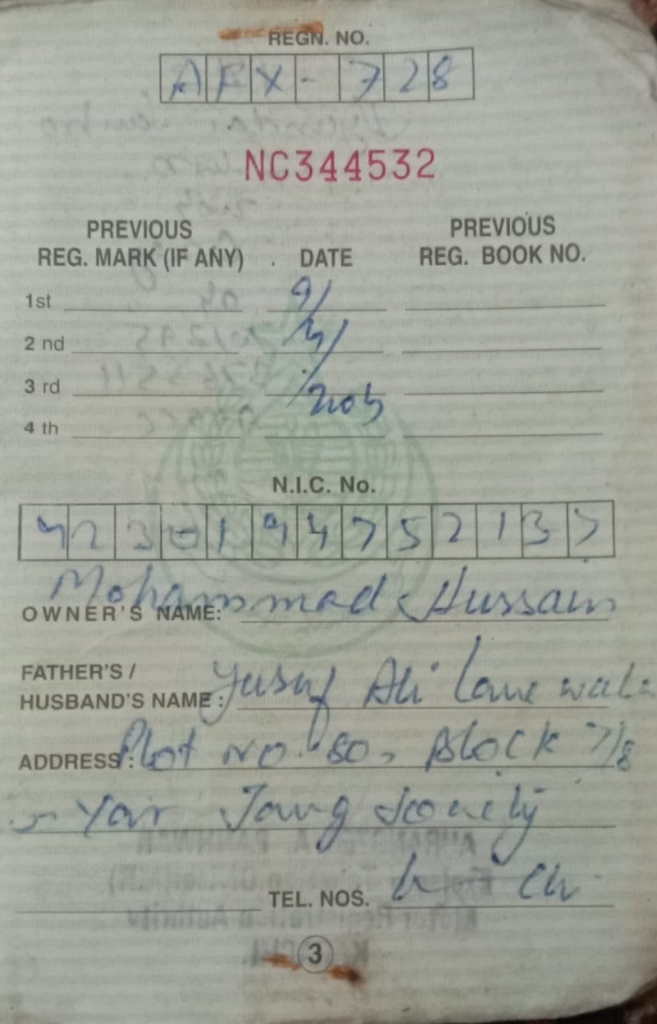 REGN. NO.
AFX-728
NC344532
PREVIOUS REG. MARK (IF ANY) . DATE PREVIOUS REG. BOOK NO.
1st 9/
2 nd 4/
3 rd 2005
4 th
N.I.C. No.
4230194752137
OWNER'S NAME: Mohammad Hussain
FATHER'S /
HUSBAND'S NAME : Yusuf Ali
ADDRESS: Plot No. 80, Block 7/8
Yar Jang Society
TEL. NOS. Khi
3